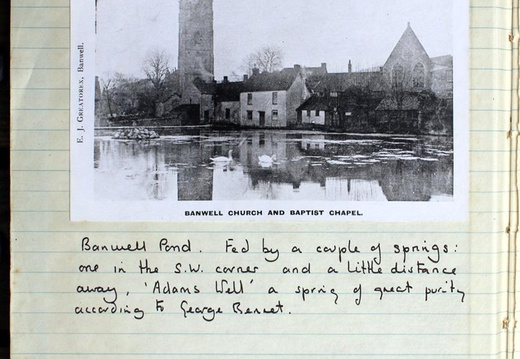 E. J. GREATOREX, Banwell.
BANWELL CHURCH AND BAPTIST CHAPEL.
Banwell Pond. Fed by a couple of springs:
one in the S.W. corner and a little distance
away, 'Adams Well' a spring of great purity
according to George Bennet.